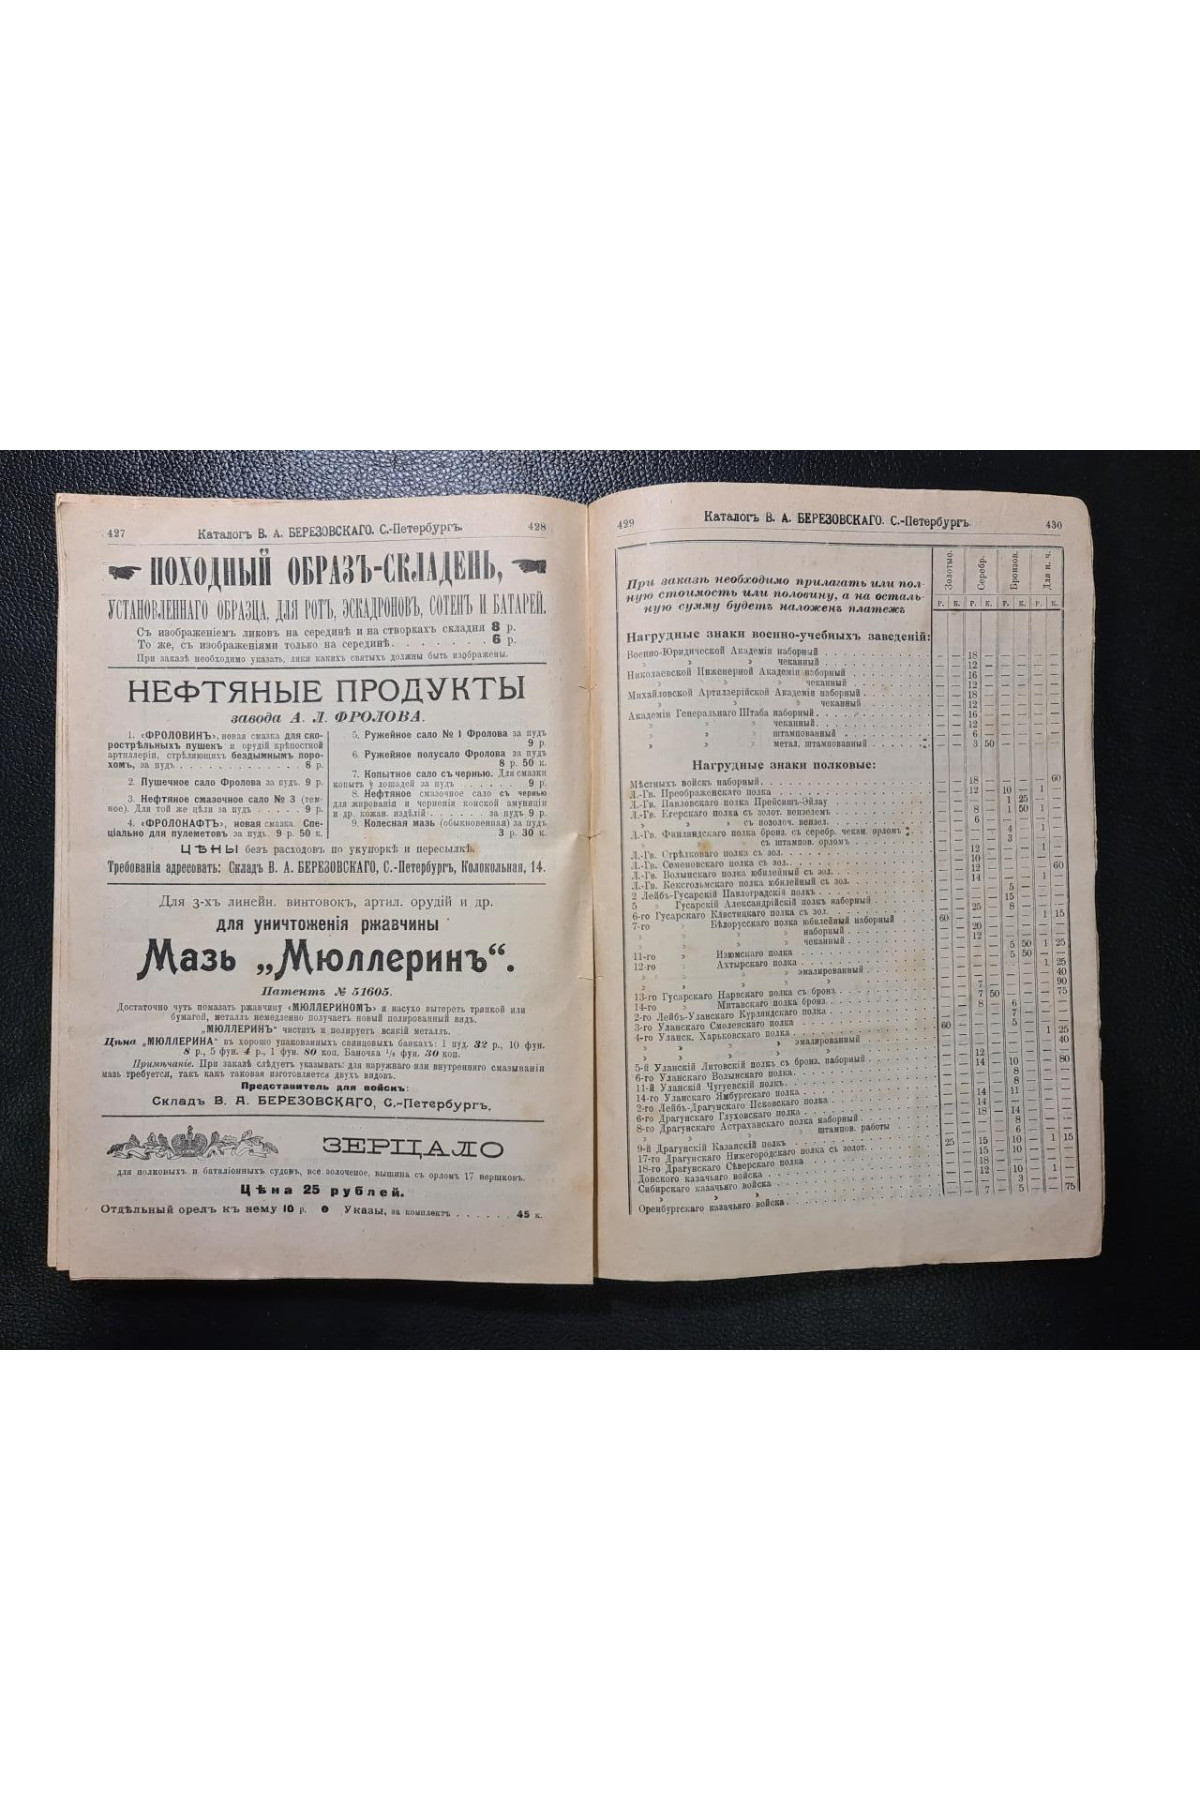 427 Каталогъ В. А. БЕРЕЗОВСКАГО. С.-Петербургъ. 428
ПОХОДНЫЙ ОБРАЗЪ-СКЛАДЕНЬ,
УСТАНОВЛЕННАГО ОБРАЗЦА, ДЛЯ РОТЪ, ЭСКАДРОНОВЪ, СОТЕНЪ И БАТАРЕЙ.
Съ изображеніемъ ликовъ на серединѣ и на створкахъ складня 8 р.
То же, съ изображеніями только на серединѣ. . . . . . . . 6 р.
При заказѣ необходимо указать, лики какихъ святыхъ должны быть изображены.
НЕФТЯНЫЕ ПРОДУКТЫ
завода А. Л. ФРОЛОВА.
1. «ФРОЛОВИНЪ», новая смазка для ско-
рострѣльныхъ пушекъ и орудій крѣпостной
артиллеріи, стрѣляющихъ бездымнымъ поро-
хомъ, за пудъ . . . . . . . . . . . 8 р.
2. Пушечное сало Фролова за пудъ. 9 р.
3. Нефтяное смазочное сало № 3 (тем-
ное). Для той же цѣли за пудъ . . . . 9 р.
4. «ФРОЛОНАФТЪ», новая смазка. Спе-
ціально для пулеметовъ за пудъ. 9 р. 50 к.
5. Ружейное сало № 1 Фролова за пудъ
9 р.
6. Ружейное полусало Фролова за пудъ
8 р. 50 к.
7. Копытное сало съ чернью. Для смазки
копытъ у лошадей за пудъ . . . . . 9 р.
8. Нефтяное смазочное сало съ чернью
для жированія и черненія конской амуниціи
и др. кожан. издѣлій . . . . . за пудъ 9 р.
9. Колесная мазь (обыкновенная) за пудъ
3 р. 30 к.
ЦѢНЫ безъ расходовъ по укупоркѣ и пересылкѣ.
Требованія адресовать: Складъ В. А. БЕРЕЗОВСКАГО, С.-Петербургъ, Колокольная, 14.
Для 3-хъ линейн. винтовокъ, артил. орудій и др.
для уничтоженія ржавчины
Мазь „Мюллеринъ“.
Патентъ № 51605.
Достаточно чуть помазать ржавчину «МЮЛЛЕРИНОМЪ» и насухо вытереть тряпкой или
бумагой, металлъ немедленно получаетъ новый полированный видъ.
„МЮЛЛЕРИНЪ“ чиститъ и полируетъ всякій металлъ.
Цѣна „МЮЛЛЕРИНА“ въ хорошо упакованныхъ свинцовыхъ банкахъ: 1 пуд. 32 р., 10 фун.
8 р., 5 фун. 4 р., 1 фун. 80 коп. Баночка 1/8 фун. 30 коп.
Примѣчаніе. При заказѣ слѣдуетъ указывать: для наружнаго или внутренняго смазыванія
мазь требуется, такъ какъ таковая изготовляется двухъ видовъ.
Представитель для войскъ:
Складъ В. А. БЕРЕЗОВСКАГО, С.-Петербургъ.
ЗЕРЦАЛО
для полковыхъ и баталіонныхъ судовъ, все золоченое, вышина съ орломъ 17 вершковъ.
Цѣна 25 рублей.
Отдѣльный орелъ къ нему 10 р. Указы, за комплектъ . . . . . . 45 к.
429 Каталогъ В. А. БЕРЕЗОВСКАГО. С.-Петербургъ. 430
Золотые. Серебр. Бронзов. Для н. ч.
Р. К. Р. К. Р. К. Р. К.
При заказѣ необходимо прилагать или пол-
ную стоимость или половину, а на осталь-
ную сумму будетъ наложенъ платежъ
Нагрудные знаки военно-учебныхъ заведеній:
Военно-Юридической Академіи наборный 18
» » » чеканный 12
Николаевской Инженерной Академіи наборный 16
» » » чеканный 12
Михайловской Артиллерійской Академіи наборный 18
» » » чеканный 12
Академіи Генеральнаго Штаба наборный 16
» » » чеканный 12
» » » штампованный 6
» » » метал. штампованный 3 50
Нагрудные знаки полковые:
Мѣстныхъ войскъ наборный
Л.-Гв. Преображенскаго полка
Л.-Гв. Павловскаго полка Прейсишъ-Эйлау
Л.-Гв. Егерскаго полка съ золот. вензелемъ
» » » съ позолоч. вензел.
Л.-Гв. Финляндскаго полка бронз. съ серебр. чекан. орломъ
» » съ штампов. орломъ
Л.-Гв. Стрѣлковаго полка съ зол.
Л.-Гв. Семеновскаго полка съ зол.
Л.-Гв. Волынскаго полка юбилейный съ зол.
Л.-Гв. Кексгольмскаго полка юбилейный съ зол.
2 Лейбъ-Гусарскій Павлоградскій полкъ
5 » Гусарскій Александрійскій полкъ наборный
6-го Гусарскаго Клястицкаго полка съ зол.
7-го » Бѣлорусскаго полка юбилейный наборный
» » » наборный
» » » чеканный
11-го » Изюмскаго полка
12-го » Ахтырскаго полка
» » » эмалированный
13-го Гусарскаго Нарвскаго полка съ бронз.
14-го » Митавскаго полка бронз.
2-го Лейбъ-Уланскаго Курляндскаго полка
3-го Уланскаго Смоленскаго полка
4-го Уланск. Харьковскаго полка
» » » эмалированный
5-й Уланскій Литовскій полкъ съ бронз. наборный
6-го Уланскаго Волынскаго полка
11-й Уланскій Чугуевскій полкъ
14-го Уланскаго Ямбургскаго полка
2-го Лейбъ-Драгунскаго Псковскаго полка
6-го Драгунскаго Глуховскаго полка
8-го Драгунскаго Астраханскаго полка наборный
» » » штампов. работы
9-й Драгунскій Казанскій полкъ
17-го Драгунскаго Нижегородскаго полка съ золот.
18-го Драгунскаго Сѣверскаго полка
Донского казачьяго войска
Сибирскаго казачьяго войска
» » »
Оренбургскаго казачьяго войска